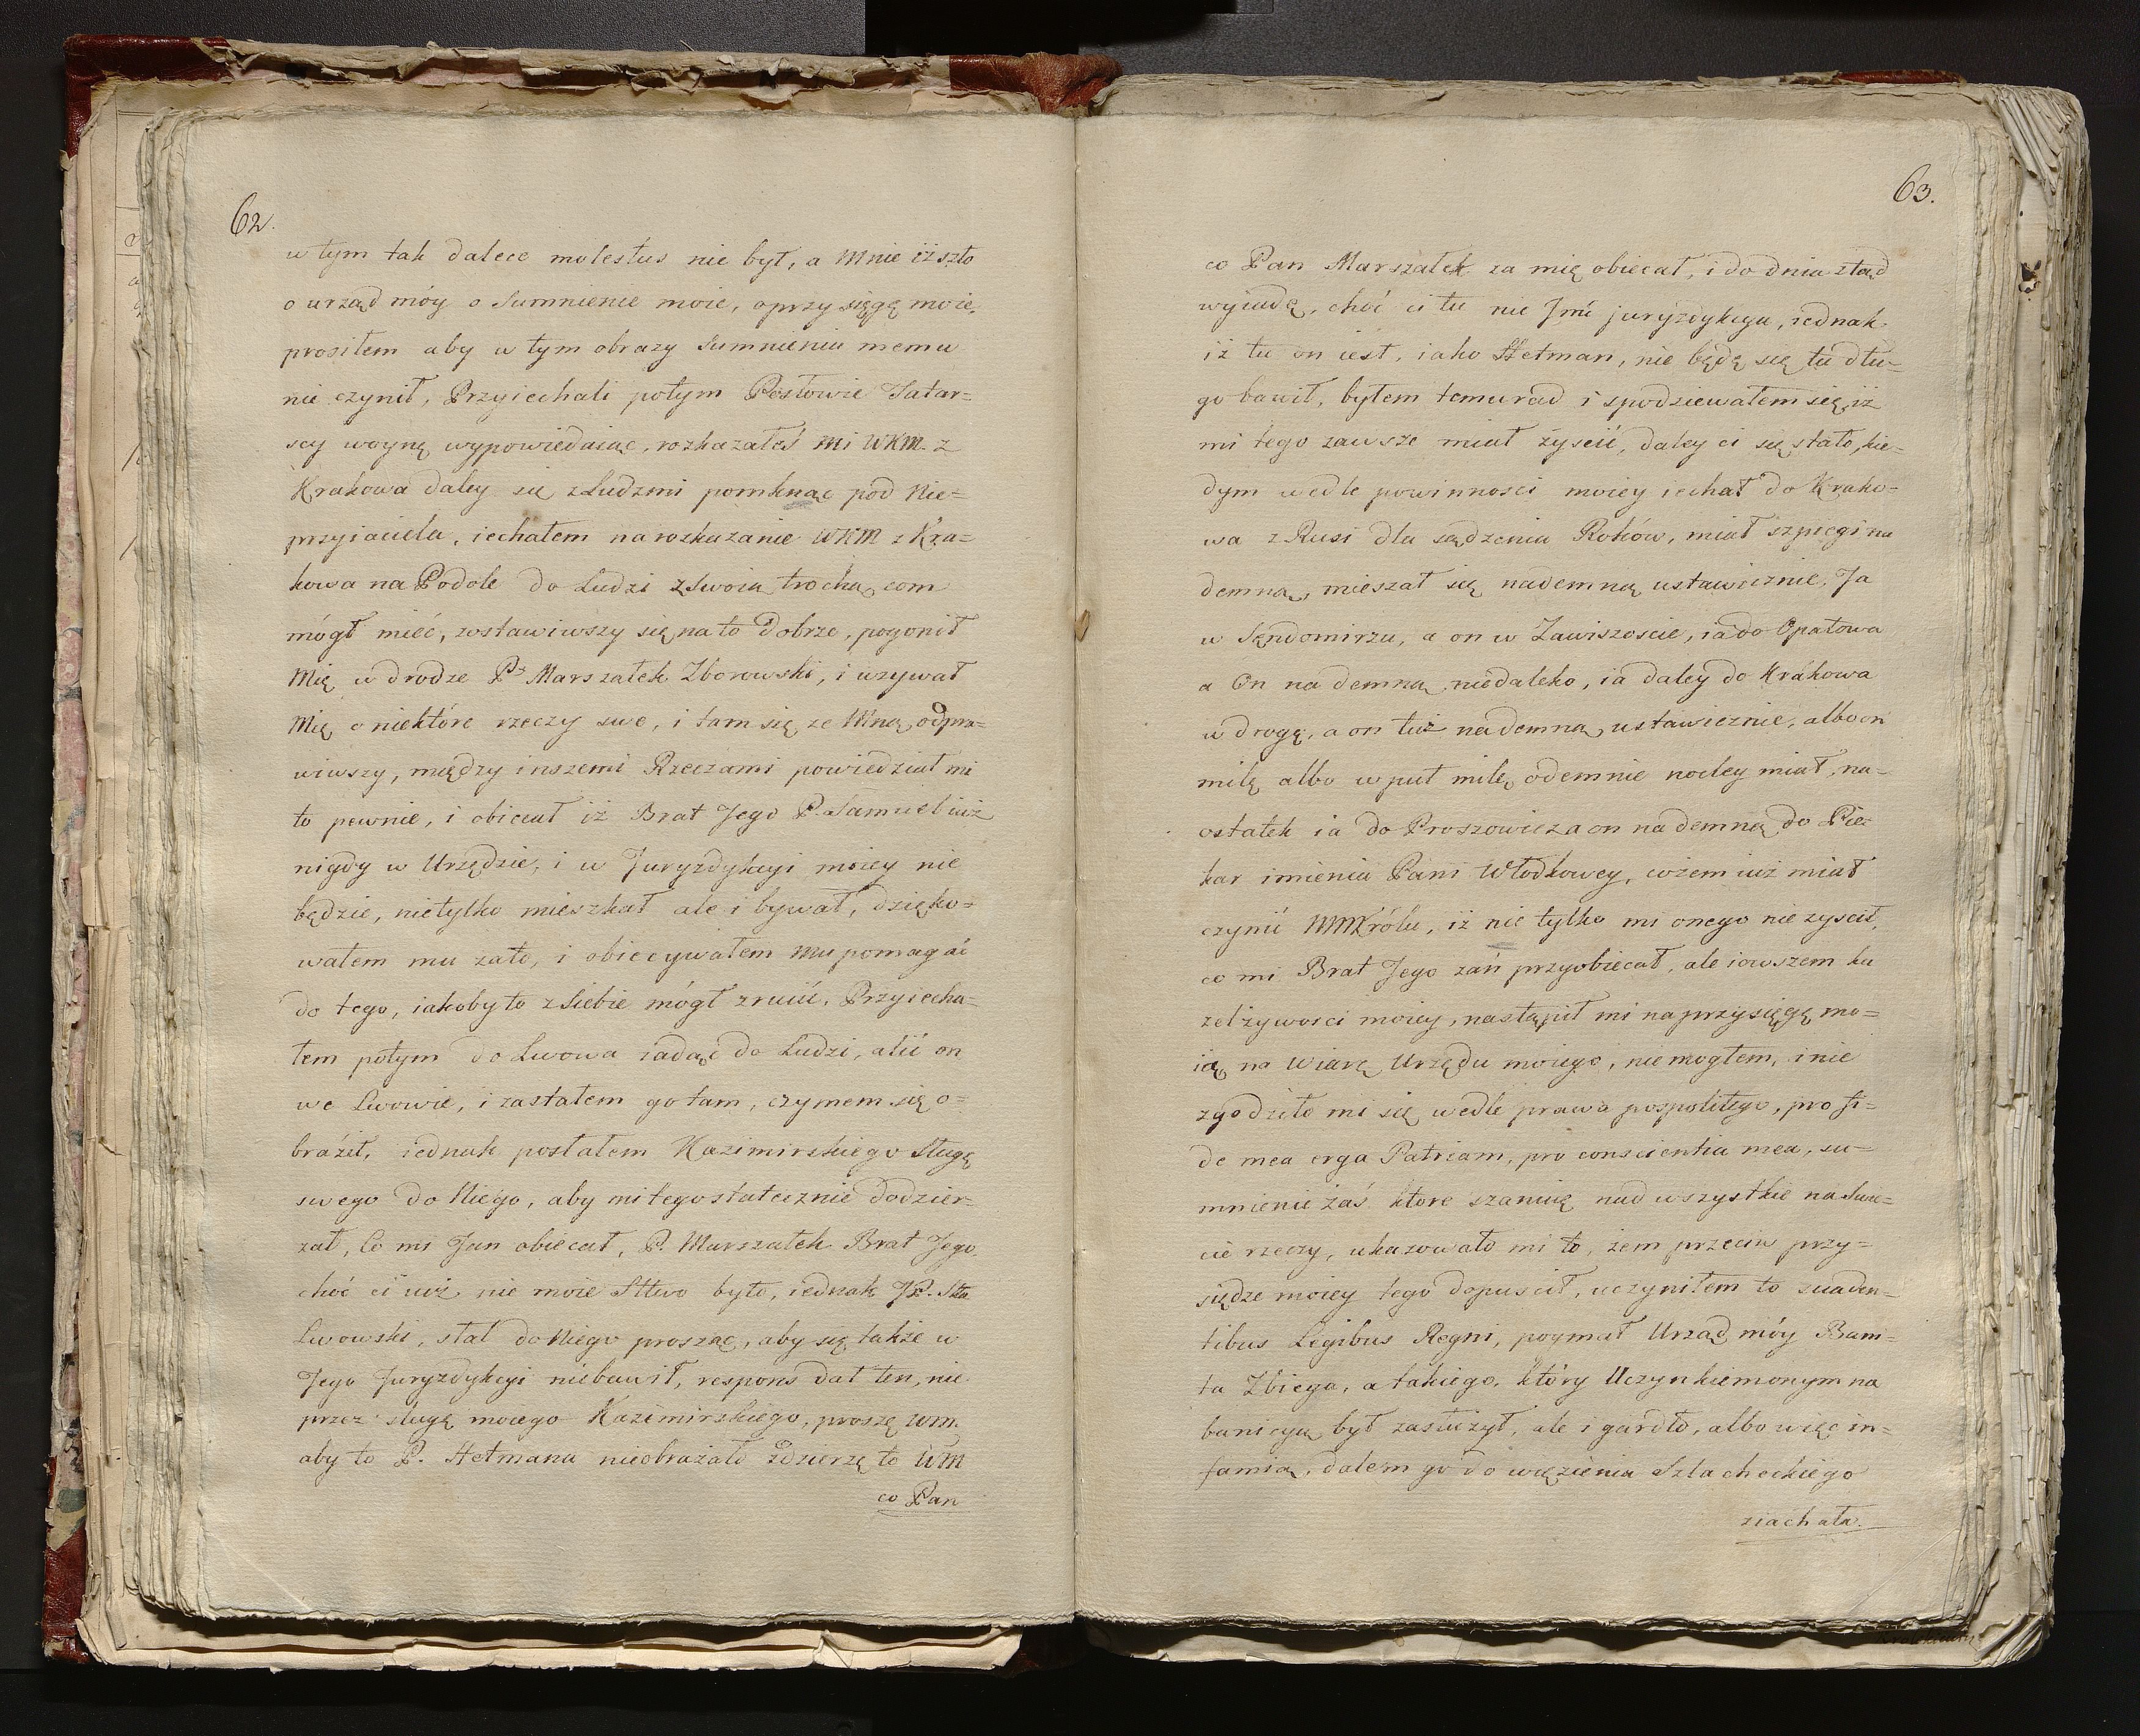 62.
w tym tak dalece molestus nie był, a Mnie iż szło
o urząd móy o Sumnienie moie, o przysięgę moię,
prosiłem aby w tym obrazy Sumnieniu memu
nie czynił, Przyiechali potym Posłowie Tatar=
scy woynę wypowiedaiąc, rozkazałeś mi WKM. z
Krakowa daley się z Ludzmi pomknąć pod Nie=
przyiaciela, iechałem na rozkazanie WKM z Kra=
kowa na Podole do Ludzi z Swoią trochą, com
mógł mieć, zostawiwszy się na to dobrze, pogonił
Mię w drodze P. Marszałek Zborowski, i uzywał
Mię o niektóre rzeczy swe, i tam się ze Mną odpra=
wiwszy, między inszemi Rzeczami powiedział mi
to pewnie, i obiecał iż Brat Jego P. Samuel iuż
nigdy w Urzędzie, i w Juryzdykcyi moiey nie
będzie, nietylko mieszkał ale i bywał, dzięko=
wałem mu zato, i obiecywałem mu pomagać
do tego, iakoby to z Siebie mógł zrucić, Przyiecha=
łem potym do Lwowa iadąc do Ludzi, alić on
we Lwowie, i zastałem go tam, czymem się o=
braził, iednak posłałem Kazimirskiego Sługę
swego do Niego, aby mi tego statecznie dodzier=
żał, Co mi Jan obiecał, P. Marszałek Brat Jego
choć ci iuż nie moie Sttwo było, iednak JP. Stta
Lwowski, słał do Niego prosząc, aby się także w
Jego Juryzdykcyi niebawił, respons dał ten, nie
przez sługę moiego Kazimirskiego, proszę WM.
aby to P. Hetmana nieobrażało zdzierzę to WM
co Pan
63.
co Pan Marszałek za mię obiecał, i do dnia ztąd
wyiadę, choć ci tu nie Jmć juryzdykcya, iednak
iż tu on iest, iako Hetman, nie będę się tu dłu=
go bawił, byłem temu rad i spodziewałem się, iż
mi tego zawsze miał zyścić, daley ci się stało, kie=
dym wedle powinnosci moiey iechał do Krako=
wa z Rusi dla sądzenia Roków, miał szpiegi na
demną, mieszał się nademną ustawicznie, Ja
w Sędomirzu, a on w Zawiszoscie, ia do Opatowa
a On nademną niedaleko, ia daley do Krákowa
w drogę, a on tuż nademną ustawicznie, albo on
milę albo w puł milę odemnie nocleg miał, na=
ostatek ia do Proszowic za on nademną do Pie=
kar imienia Pani Włodkowey, cożem iuż miał
czynić MMKrólu, iż nie tylko mi onego nie zyscił,
co mi Brat Jego zań przyobiecał, ale iowszem ku
zelżywości moiey, nastąpił mi na przysięgę mo=
ią, na Wiarę Urzędu moiego, nie mogłem, i nie
zgodziło mi się wedle prawa pospolitego, pro fi=
de mea erga Patriam, pro conscientia mea, su=
mnienie zaś ktore szanuię nad wszystkie na Swie=
cie rzeczy, ukazowało mi to, żem przeciw przy=
siędze moiey tego dopuscił, uczyniłem to suaden=
tibus Legibus Regni, poymał Urząd móy Bani=
ta Zbiega, a takiego, który Uczynkiem onym na
banicyą był zasłużył, ale i gardło, albo więc in=
famią, dałem go do więzienia Szlacheckiego
ziachała.